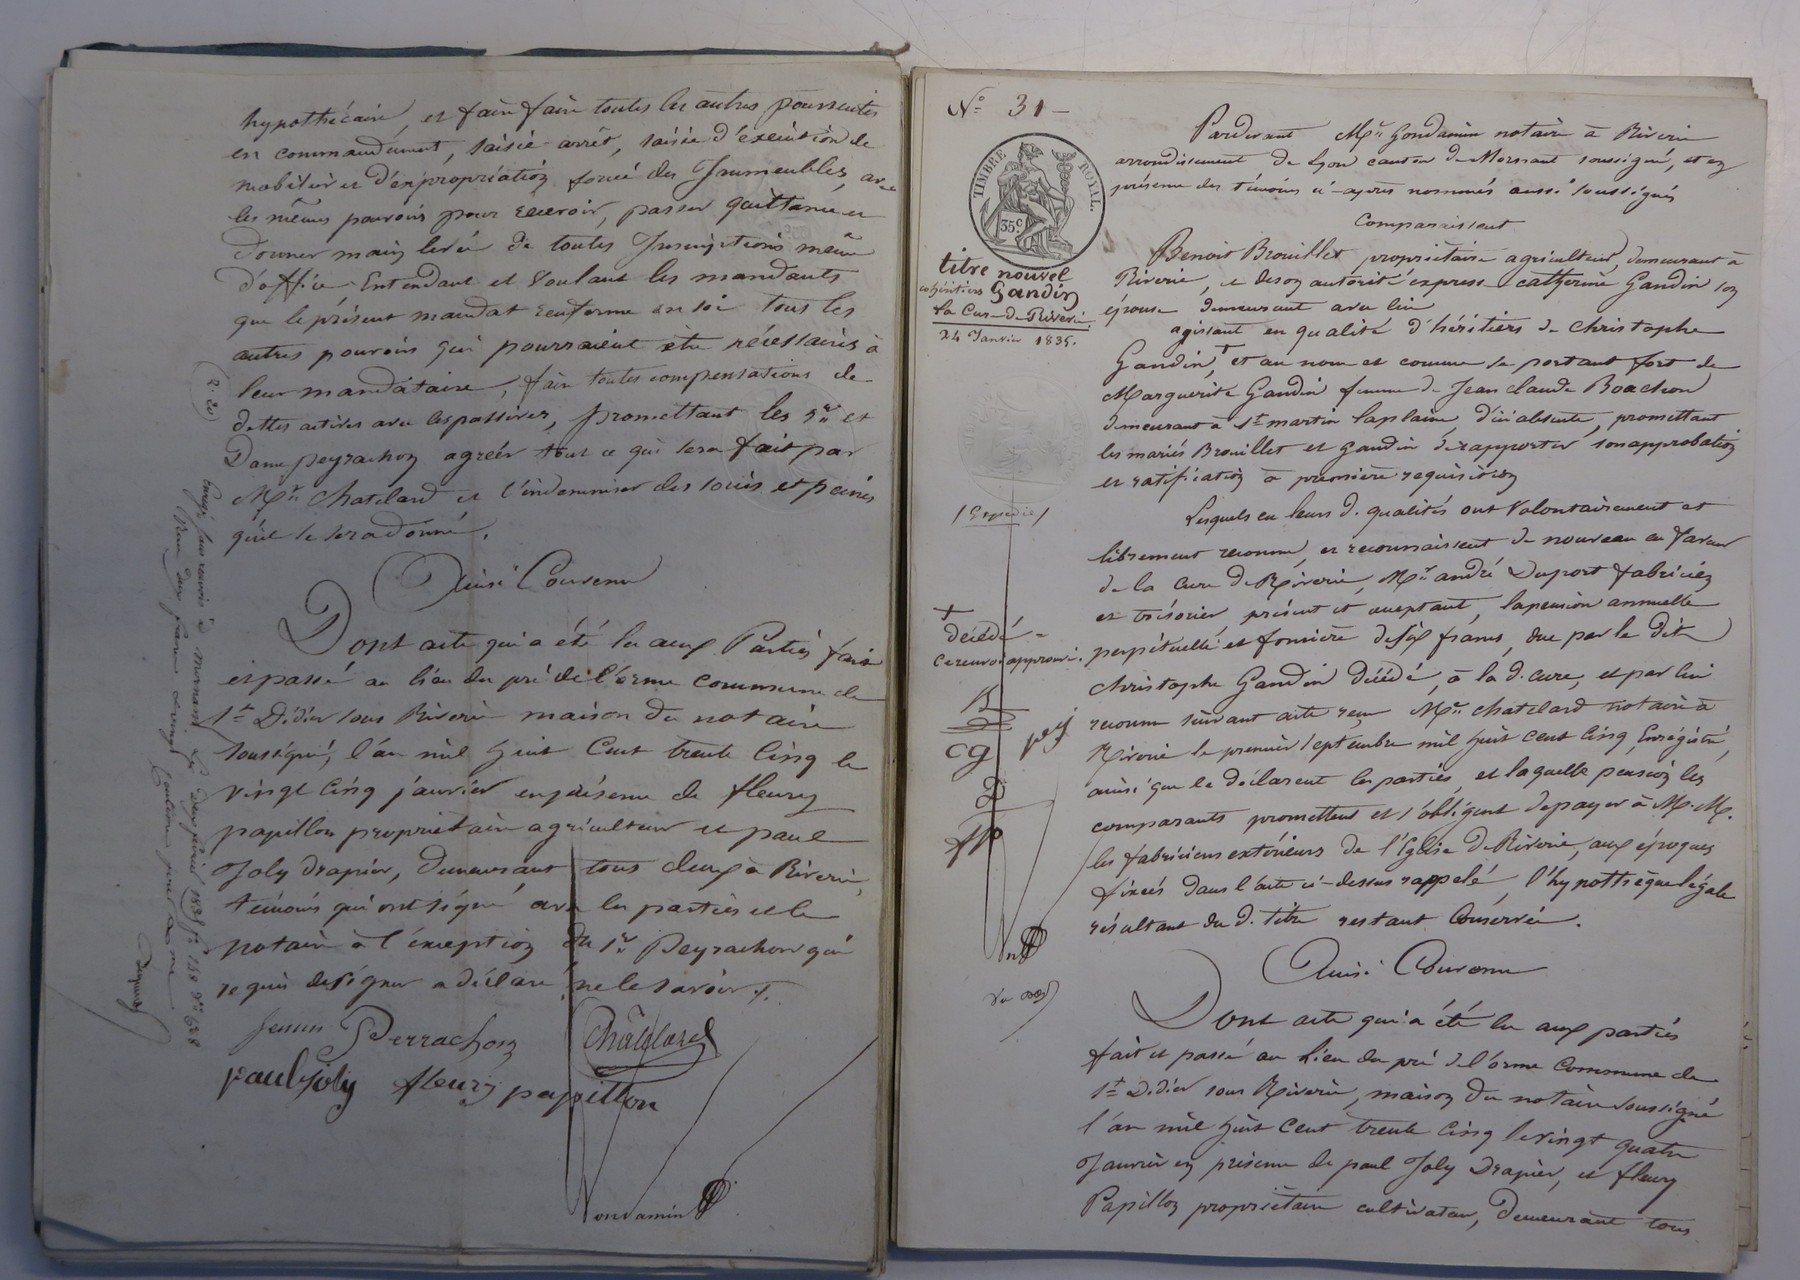 hypothécaire, et faire faire toutes les autres poursuites
en commandement, saisie arrêt, saisie d'exécution de
mobilier et d'expropriation forcée des Immeubles, avec
les mêmes pouvoirs pour recevoir, passer quittance et
donner main levée de toutes Inscriptions même
d'office. Entendant et voulant les mandants
que le présent mandat renferme en soi tous les
autres pouvoirs qui pourraient être nécessaires à
leur mandataire, faire toutes compensations de
dettes actives avec les passives, promettant les Sr et
Dame peyrachon agréer tout ce qui sera fait par
Mr. Chatelard et l'indemniser des soins et peines
qu'il se sera donné.
Ainsi Convenu
Dont acte qui a été lu aux Parties fait
et passé au lieu du pré de l'orme commune de
St. Didier sous Riverie maison du notaire
soussigné, l'an mil huit Cent trente Cinq le
vingt Cinq janvier en présence de fleury
papillon propriétaire agriculteur et paul
Joly drapier, demeurant tous deux à Riverie,
témoins qui ont signé avec les parties et le
notaire à l'exception du Sr. Peyrachon qui
requis de signer a déclaré ne le savoir.
femme Perrachon Châtelard
paul joly fleury papillon
ondamin
(R. 20)
fevrier 1835 fo 158
N° 31 -
TIMBRE ROYAL.
35c.
titre nouvel
cohéritiers Gandin
La Cure de Riverie
24 Janvier 1835.
/ Expédié /
+
décédé =
ce renvoi approuvé.
B
cg pj
D
fp
Pardevant Me. Gondamin notaire à Riverie
arrondissement de Lyon canton de Mornant soussigné, et en
présence des témoins ci-après nommés aussi soussignés
Comparaissent
Benoit Brouillet propriétaire agriculteur, demeurant à
Riverie, et de son autorité expresse catherine Gandin son
épouse demeurant avec lui
agissant en qualité d'héritiers de christophe
Gandin,+ et au nom et comme se portant fort de
Marguerite Gandin femme de Jean claude Boachon
demeurant à St. martin laplaine, d'ici absente, promettant
les mariés Brouillet et Gandin de rapporter son approbation
et ratification à première réquisition
Lesquels en leurs d. qualités ont volontairement et
librement reconnu, et reconnaissent de nouveau en faveur
de la cure de Riverie, Mr. andré Duport fabricien
et trésorier, présent et acceptant, la pension annuelle
perpétuelle et foncière de six francs, due par le dit
christophe Gandin décédé, à la d. cure, et par lui
reconnu suivant acte reçu Me. chatelard notaire à
Riverie le premier septembre mil huit cent cinq, Enregistré,
ainsi que le déclarent les parties, et laquelle pension les
comparants promettent et s'obligent de payer à M.M.
les fabriciens extérieurs de l'Eglise de Riverie, aux époques
fixées dans l'acte ci-dessus rappelé, l'hypothèque légale
résultant du d. titre restant Conservée.
Ainsi Convenu
Dont acte qui a été lu aux parties
fait et passé au lieu du pré de l'orme Commune de
St. Didier sous Riverie, maison du notaire soussigné
l'an mil huit Cent trente Cinq le vingt quatre
Janvier en présence de paul Joly Drapier, et fleury
Papillon propriétaire cultivateur, demeurant tous